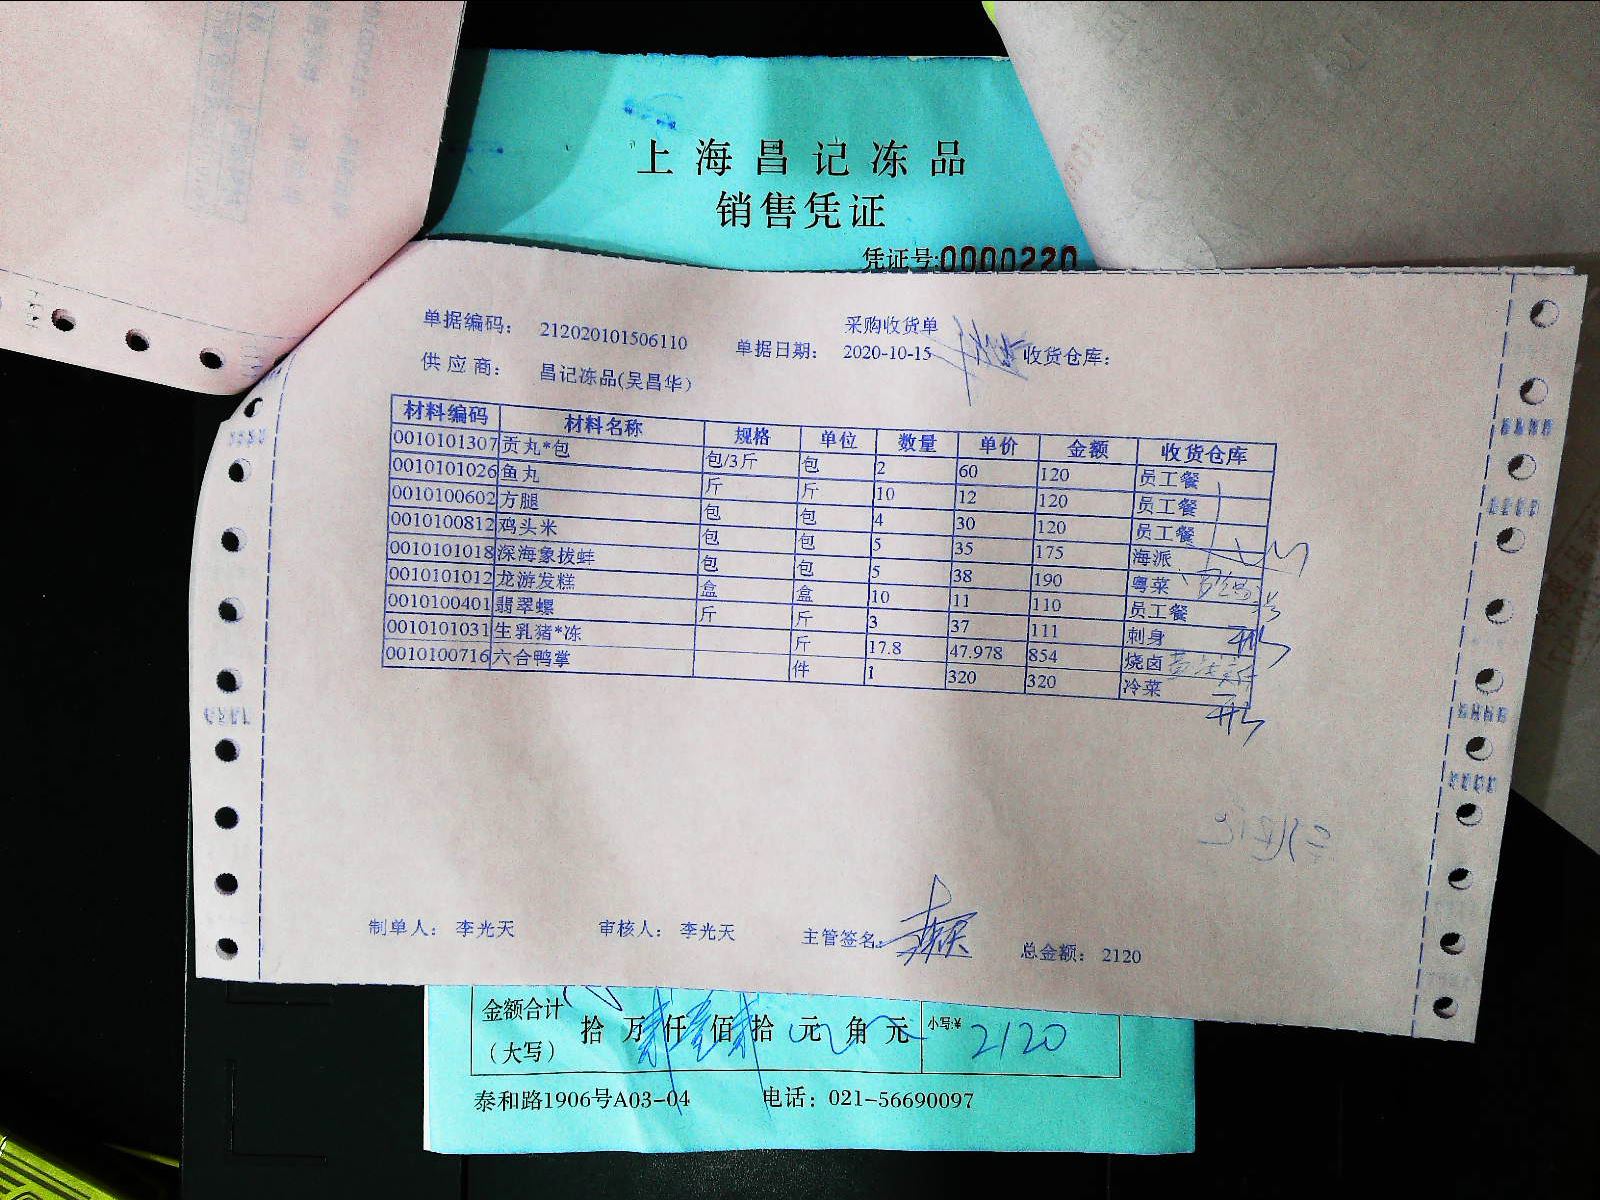 上海昌记冻品
销售凭证
凭证号:0000220
采购收货单
单据编码: 212020101506110 单据日期: 2020-10-15 收货仓库:
供应商: 昌记冻品(吴昌华)
材料编码 材料名称 规格 单位 数量 单价 金额 收货仓库
0010101307 贡丸*包 包/3斤 包 2 60 120 员工餐
0010101026 鱼丸 斤 斤 10 12 120 员工餐
0010100602 方腿 包 包 4 30 120 员工餐
0010100812 鸡头米 包 包 5 35 175 海派
0010101018 深海象拔蚌 包 包 5 38 190 粤菜
0010101012 龙游发糕 盒 盒 10 11 110 员工餐
0010100401 翡翠螺 斤 斤 3 37 111 刺身
0010101031 生乳猪*冻 斤 17.8 47.978 854 烧卤
0010100716 六合鸭掌 件 1 320 320 冷菜
制单人: 李光天 审核人: 李光天 主管签名: 总金额: 2120
金额合计
(大写) 拾万贰仟壹佰贰拾元角元 小写:¥ 2120
泰和路1906号A03-04 电话: 021-56690097